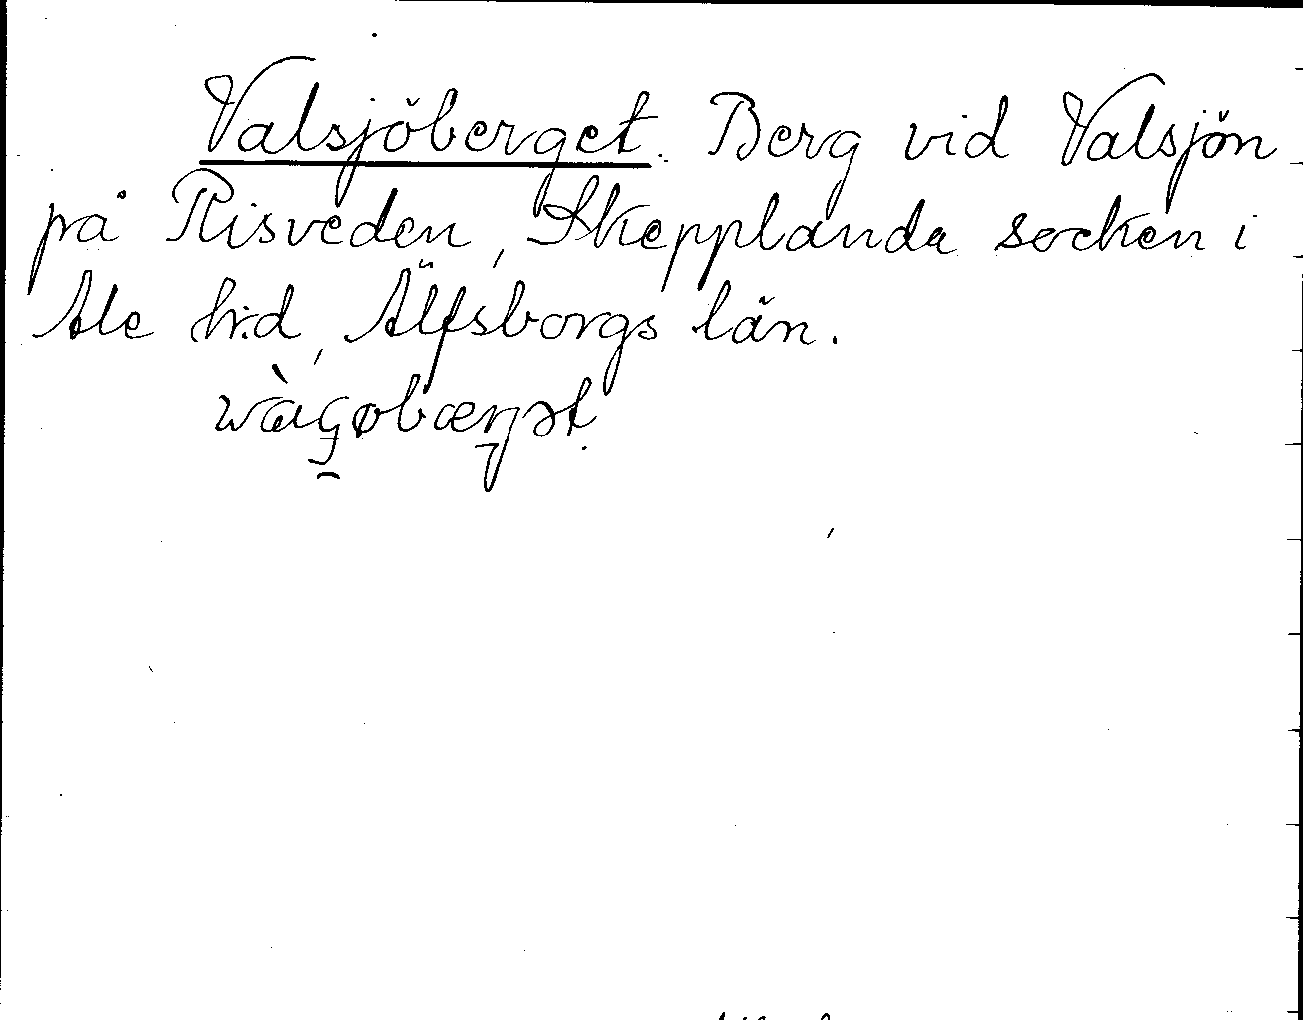 Valsjöberget. Berg vid Valsjön
på Risveden, Skepplanda socken i
Ale hrd, Älfsborgs län.